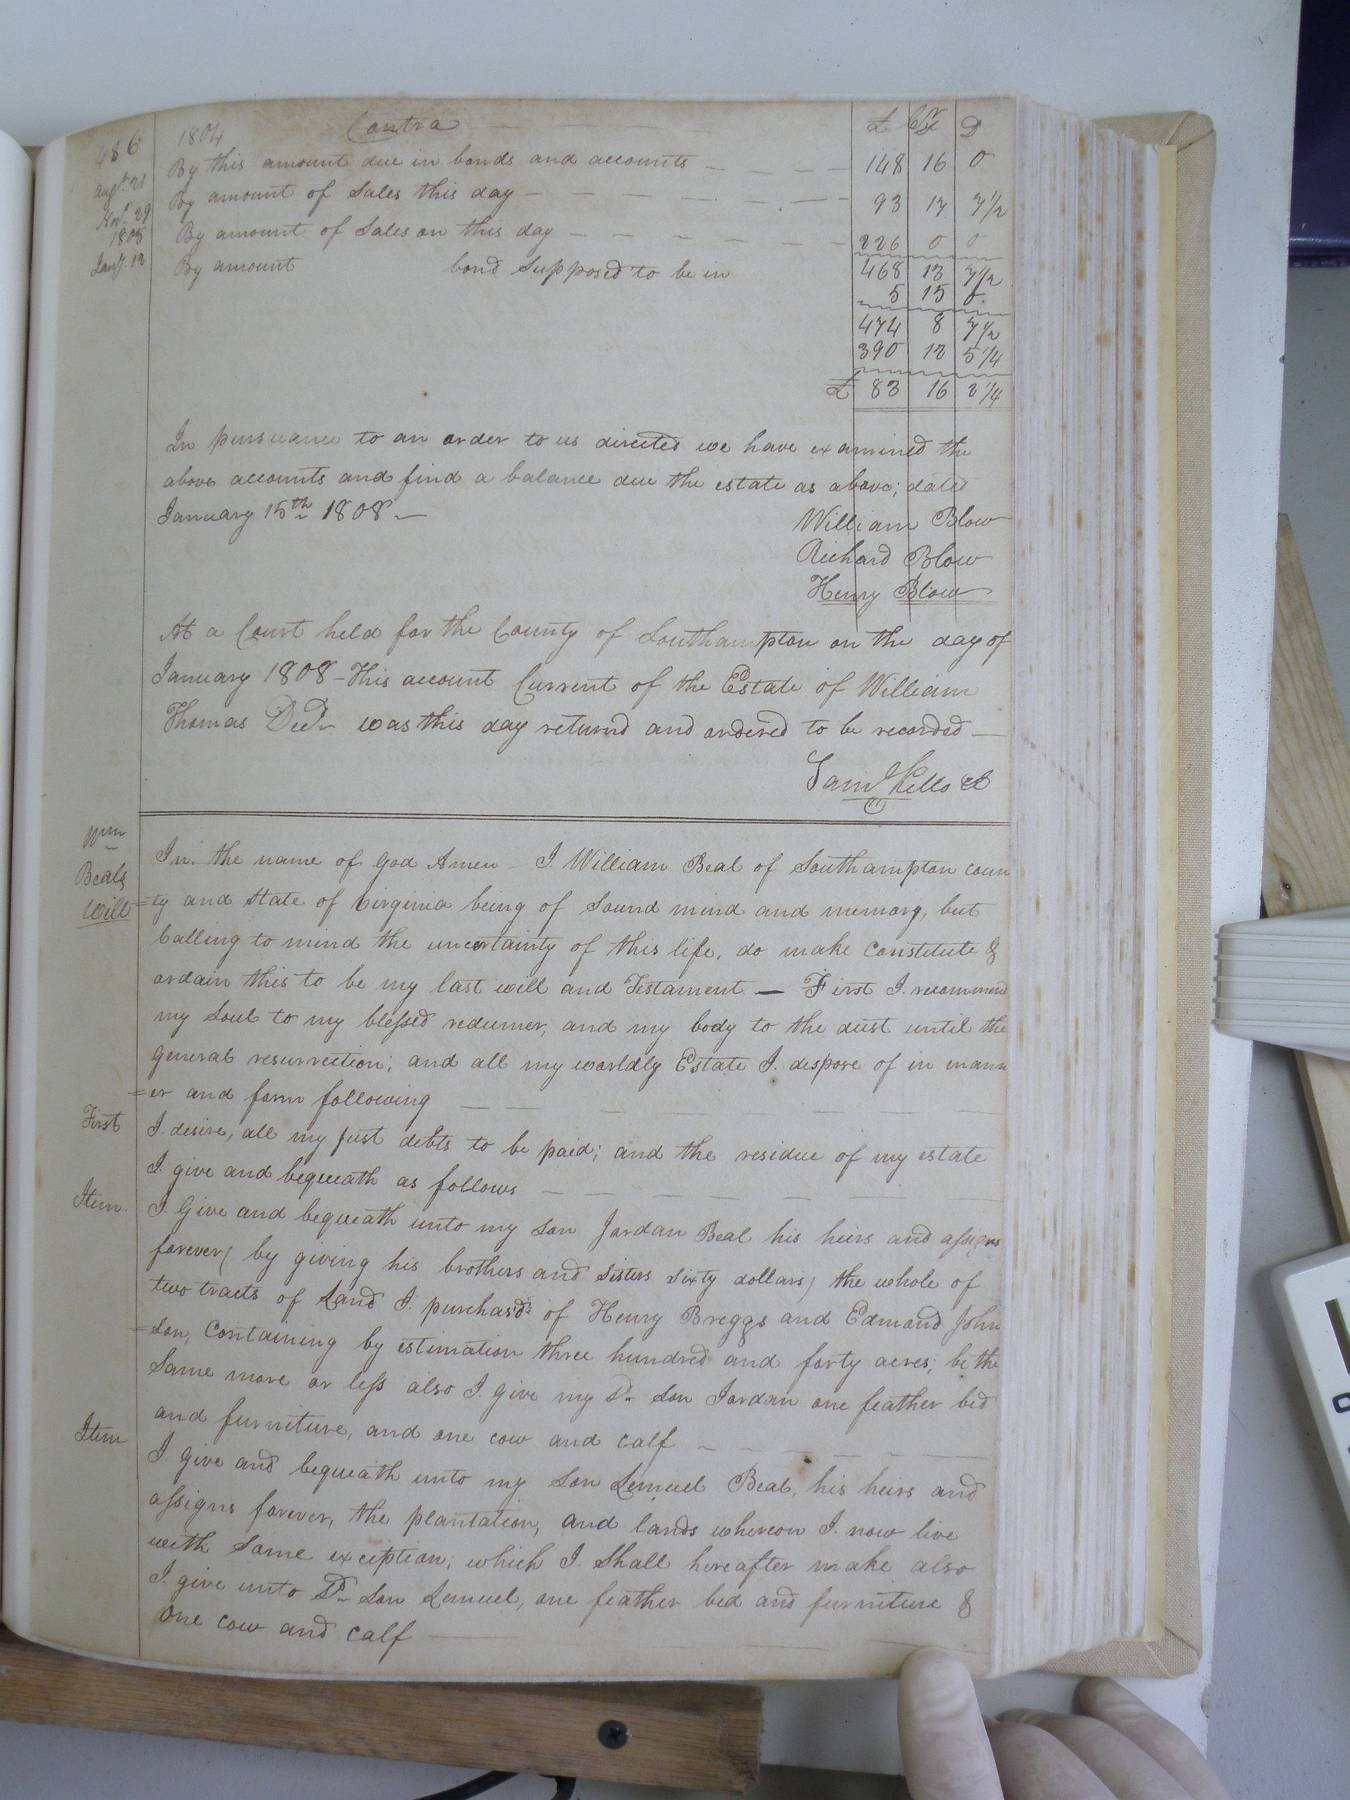 486 1804 Contra £ S D
By this amount due in bonds and accounts 148 16 0
Augt. 21 By amount of Sales this day 93 17 7 1/2
Novr. 29 By amount of Sales on this day 226 0 0
1805
Jany. 13 By amount bond Supposed to be in 468 13 7 1/2
5 15 0
474 8 7 1/2
390 12 5 1/4
£ 83 16 2 1/4
In pursuance to an order to us directed we have examined the
above accounts and find a balance due the estate as above; dated
January 15th 1808
William Blow
Richard Blow
Henry Blow
At a Court held for the County of Southampton on the day of
January 1808 - This account Current of the Estate of William
Thomas Decd. was this day returnd and ordered to be recorded
Saml Kello
Wm
Beals
Will
In the name of God Amen - I William Beal of Southampton coun
=ty and State of Virginia being of Sound mind and memory, but
Calling to mind the uncertainty of this life, do make Constitute &
ordain this to be my last will and Testament — First I recommend
my Soul to my blessed redeemer, and my body to the dust until the
general resurrection; and all my worldly Estate I dispose of in mann
=er and form following
First I desire, all my just debts to be paid; and the residue of my estate
I give and bequeath as follows
Item. I Give and bequeath unto my Son Jordan Beal his heirs and assigns
forever ( by giving his brothers and sisters sixty dollars) the whole of
two tracts of Land I purchasd of Henry Breggs and Edmond John
=son, Containing by estimation three hundred and forty acres; be the
Same more or less also I give my Sd. Son Jordan one feather bed
and furniture, and one cow and calf
Item I give and bequeath unto my Son Lemuel Beal, his heirs and
assigns forever, the plantation, and lands whereon I now live
with Some exception; which I Shall hereafter make also
I give unto Sd. Son Lemuel, one feather bed and furniture &
One cow and calf